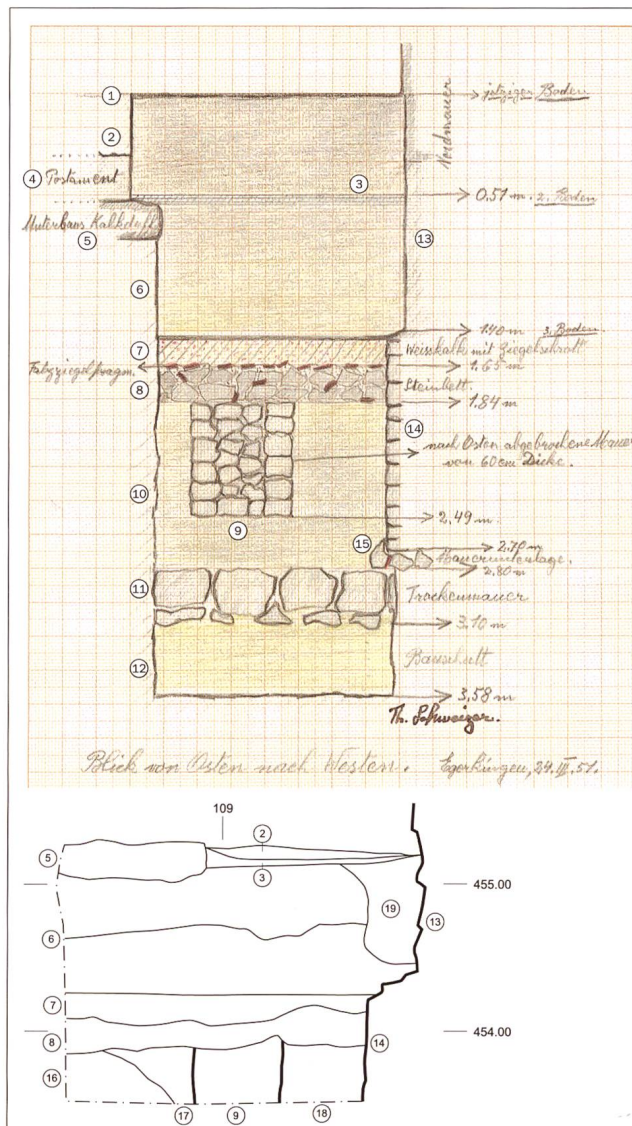 1
jetziger Boden
Nordmauer
2
4 Postament
3
0.51 m. 2. Boden
Unterbaus Kalktuff
5
13
6
1.40 m 3. Boden.
7
Weisskalk mit Ziegelschrott
Falzziegelfragm.
1,65 m
8
Steinbett.
1.84 m
14
nach Osten abgebrochene Mauer
von 60 cm Dicke.
10
2,49 m.
9
15
2.70 m
Mauerunterlage.
2.80 m
11
Trockenmauer
3.10 m
12
Bauschutt
3,58 m
Th. Schweizer.
Blick von Osten nach Westen. Egerkingen, 24. III. 51.
109
2
5
3
455.00
19
13
6
7
454.00
8
14
16
17
9
18